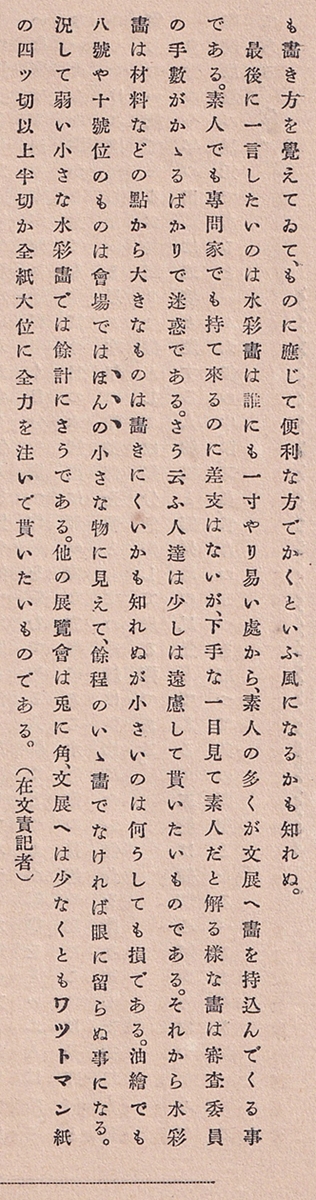 も畵き方を覺えてゐて、ものに應じて便利な方でかくといふ風になるかも知れぬ。
最後に一言したいのは水彩畵は誰にも一寸やり易い處から、素人の多くが文展へ畵を持込んでくる事
である。素人でも專門家でも持て來るのに差支はないが、下手な一目見て素人だと解る樣な畵は審査委員
の手數がかゝるばかりで迷惑である。さう云ふ人達は少しは遠慮して貰いたいものである。それから水彩
畵は材料などの點から大きなものは畵きにくいかも知れぬが小さいのは何うしても損である。油繪でも
八號や十號位のものは會場ではほんの小さな物に見えて、餘程のいゝ畵でなければ眼に留らぬ事になる。
況して弱い小さな水彩畵では餘計にさうである。他の展覽會は兎に角、文展へは少なくともワツトマン紙
の四ツ切以上半切か全紙大位に全力を注いで貰いたいものである。（在文責記者）